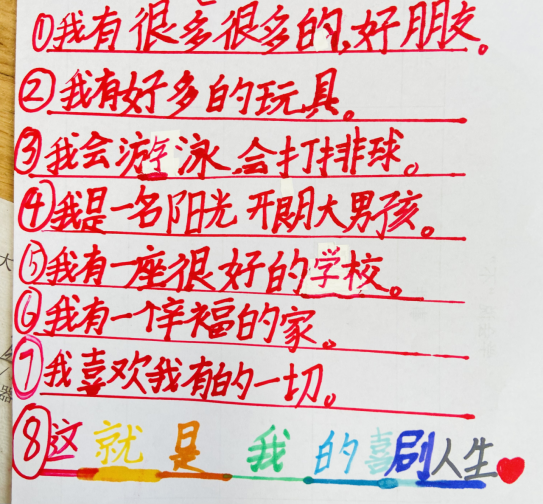 ①我有很多很多的好朋友。
②我有好多的玩具。
③我会游泳会打排球。
④我是一名阳光开朗大男孩。
⑤我有一座很好的学校。
⑥我有一个幸福的家。
⑦我喜欢我有的一切。
⑧这就是我的喜剧人生